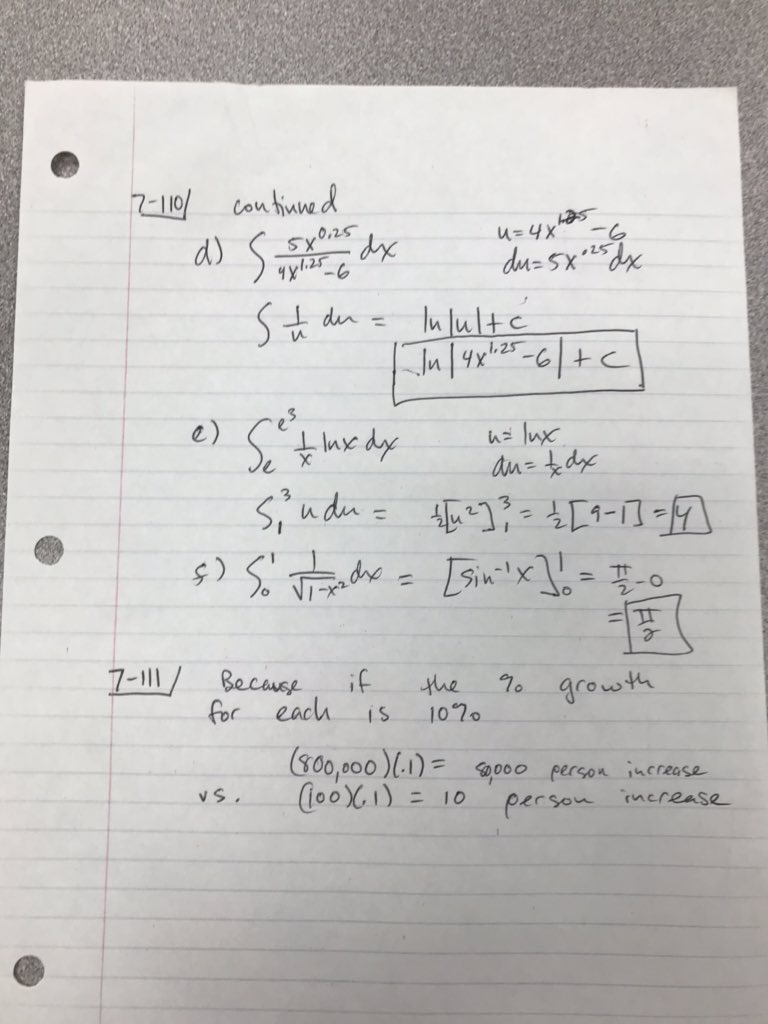 7-110/ continued
d) ∫ 5x^0.25 / 4x^1.25 - 6 dx u = 4x^1.25 - 6
du = 5x^.25 dx
∫ 1/u du = ln|u| + c
ln|4x^1.25 - 6| + c
e) ∫_e^e^3 1/x lnx dx u = lnx
du = 1/x dx
∫_1^3 u du = 1/2[u^2]_1^3 = 1/2[9-1] = 4
f) ∫_0^1 1/√(1-x^2) dx = [sin^-1 x]_0^1 = π/2 - 0
= π/2
7-111/ Because if the % growth
for each is 10%
(800,000)(.1) = 80,000 person increase
vs. (100)(.1) = 10 person increase